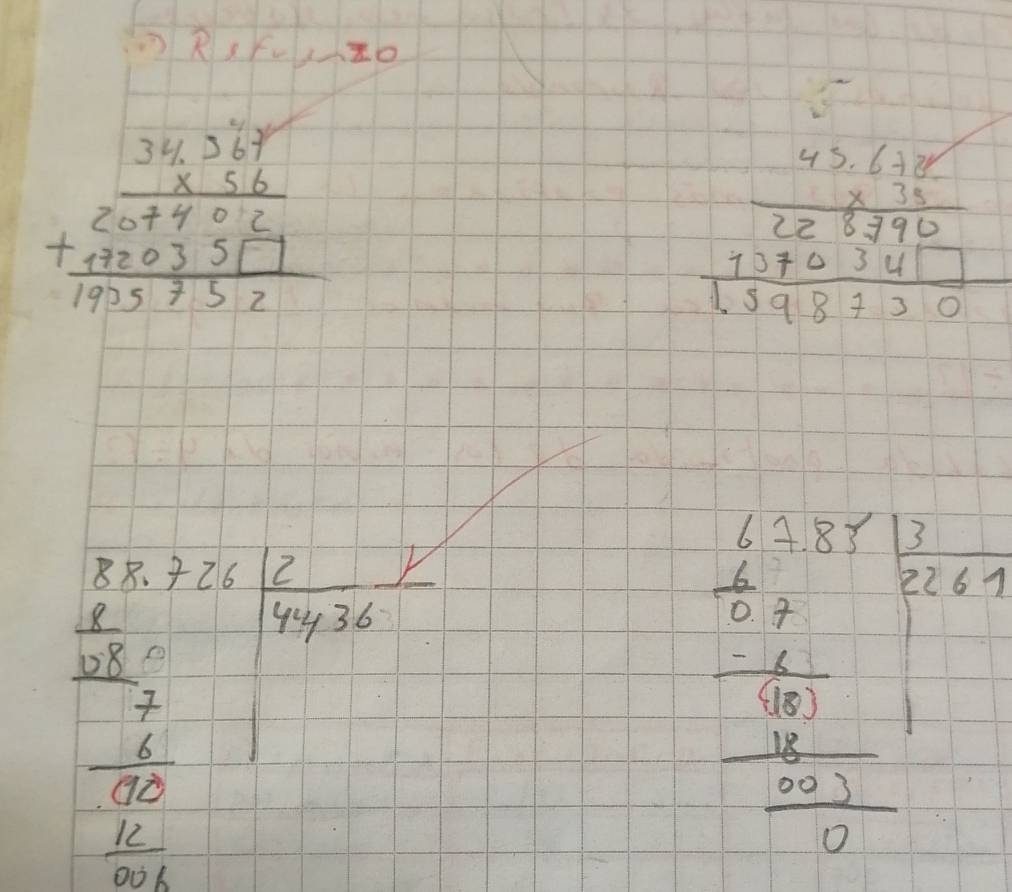 Refuerzo
34.567
x 56
207402
+ 172035□
1935752
45.678
x 35
228390
137034□
1.598730
88.726 | 2
8 4436
08
7
6
(12)
12
006
67.83 | 3
6 2261
0.7
- 6
(18)
18
003
0